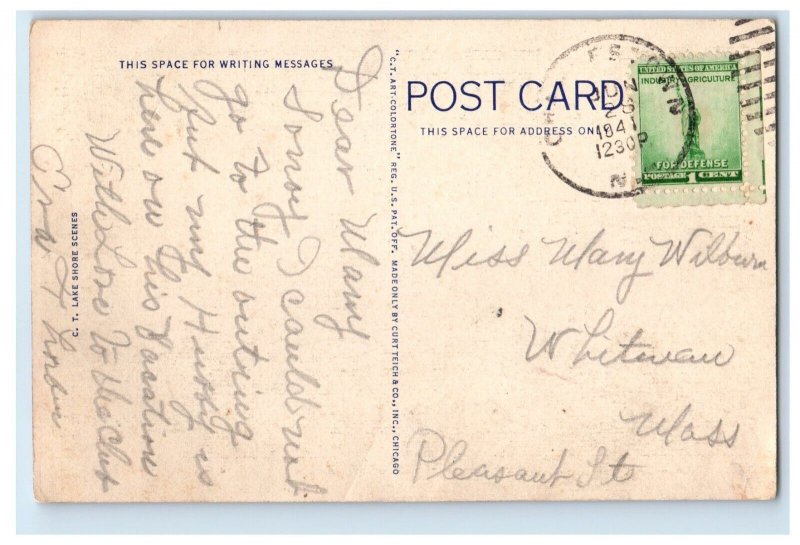 THIS SPACE FOR WRITING MESSAGES
Dear Mary
Sorry I could not
go to the outing
but my Hubby is
here on his Vacation
With Love to the Club
C. T. LAKE SHORE SCENES
"C.T. ART-COLORTONE" REG. U.S. PAT. OFF. MADE ONLY BY CURT TEICH & CO., INC., CHICAGO
POST CARD
THIS SPACE FOR ADDRESS ONLY
1941
1230P
UNITED STATES OF AMERICA
INDUSTRY AGRICULTURE
FOR DEFENSE
POSTAGE 1 CENT
Miss Mary Wilburn
Whitman
Mass
Pleasant St